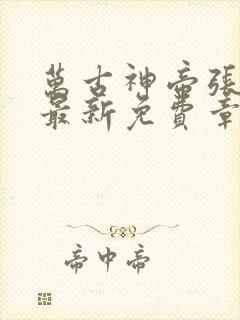 萬古神帝張
最新免費章
帝中帝